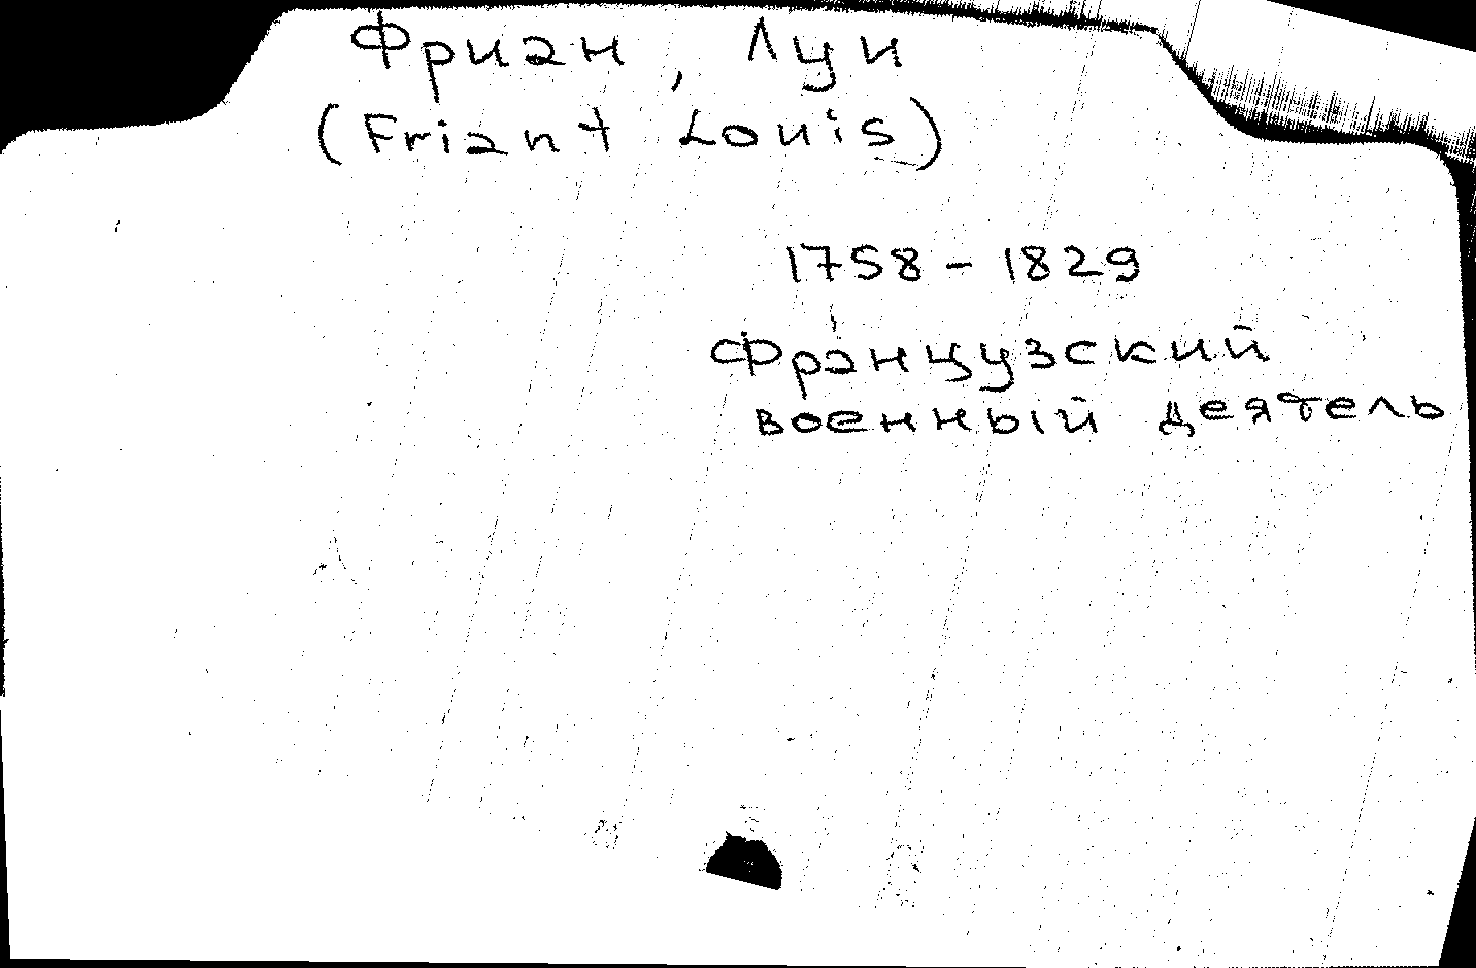 Фриан, Луи
(Friant Louis)
1758-1829
Французский
военный деятель